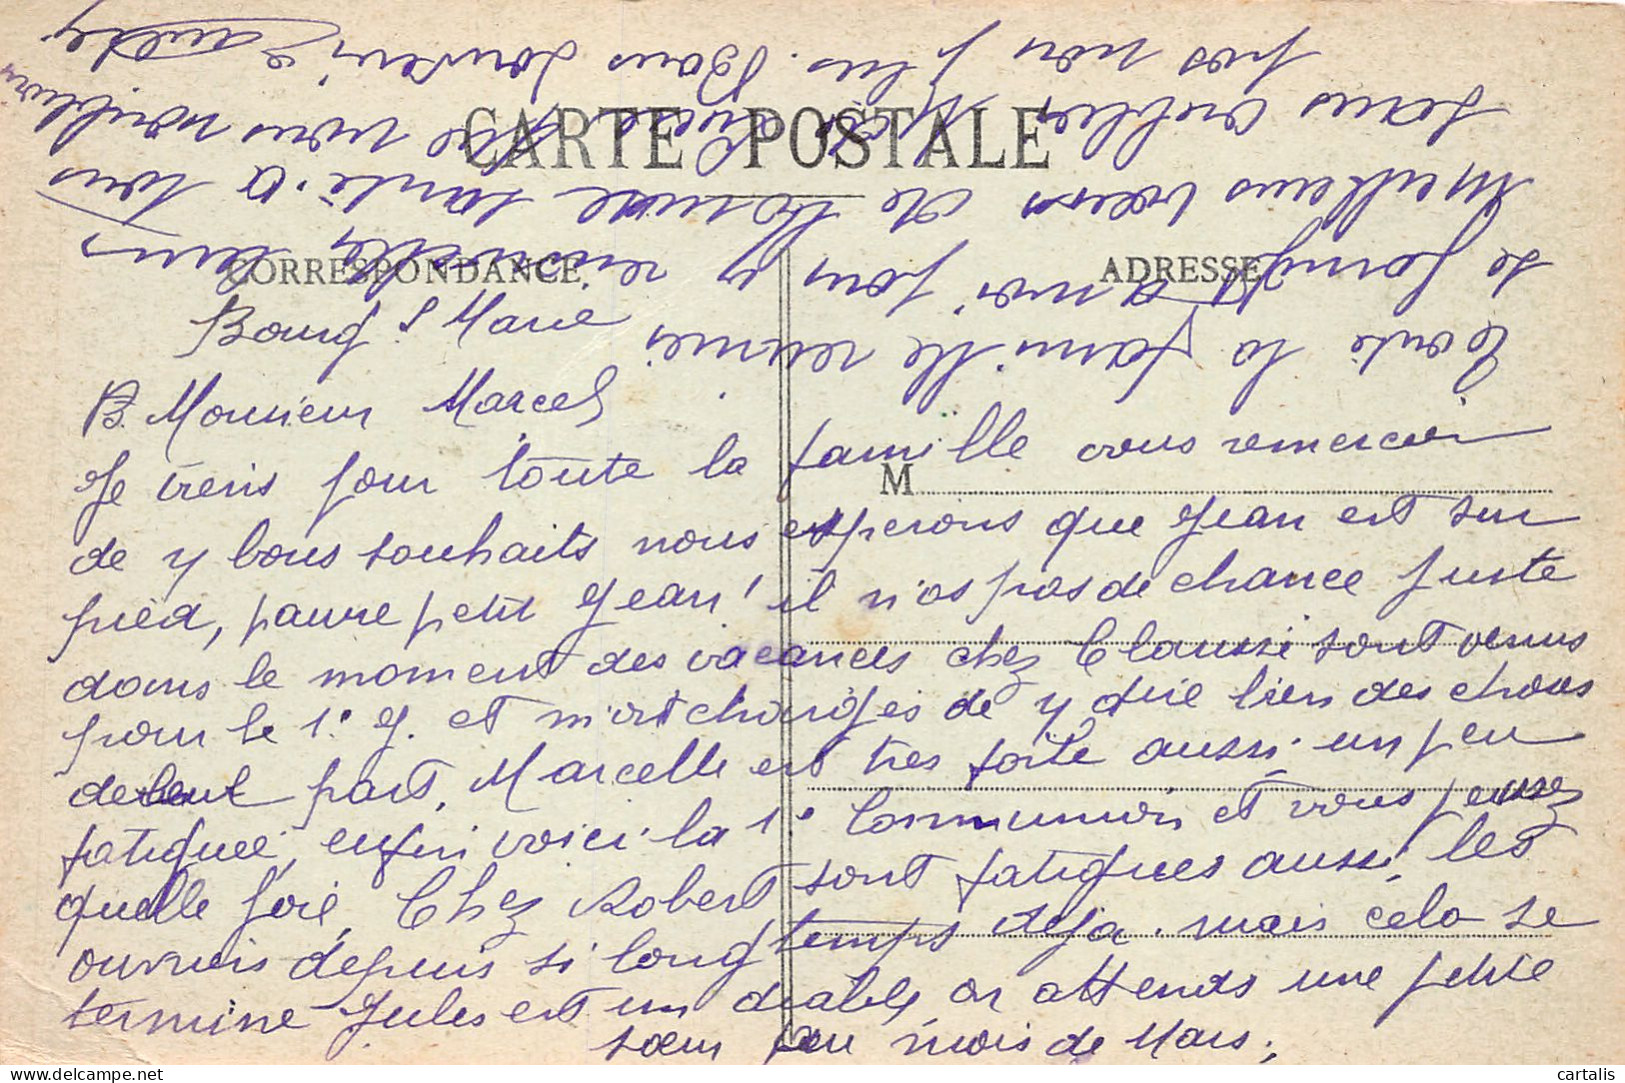 CARTE POSTALE
CORRESPONDANCE
ADRESSE
M
Bourg S Marie
B. Monsieur Marcel
Je viens pour toute la famille vous remercier
de y bous souhaits nous esperons que Jean est sur
pied, pauvre petit Jean! il n'as pas de chance juste
dans le moment des vacances chez Claussi sont venus
pour le 1° J. et m'ont chargés de y dire bien des choses
de leur part, Marcelle est tres forte aussi un peu
fatiguée, enfin voici la 1° Communion et vous pensez
quelle joie, Chez Robert sont fatigues aussi, les
ouvrois depuis si longtemps deja. mais cela se
termine Jules est un diable, on attends une petite
sœur pour mois de Mars,
toute la famille reunies
se joingt a moi pour y renouveller leurs
meilleurs vœux de bonne sante. a tous
sans oublier que nous n'oublions
pas non plus. Bons Souvenirs